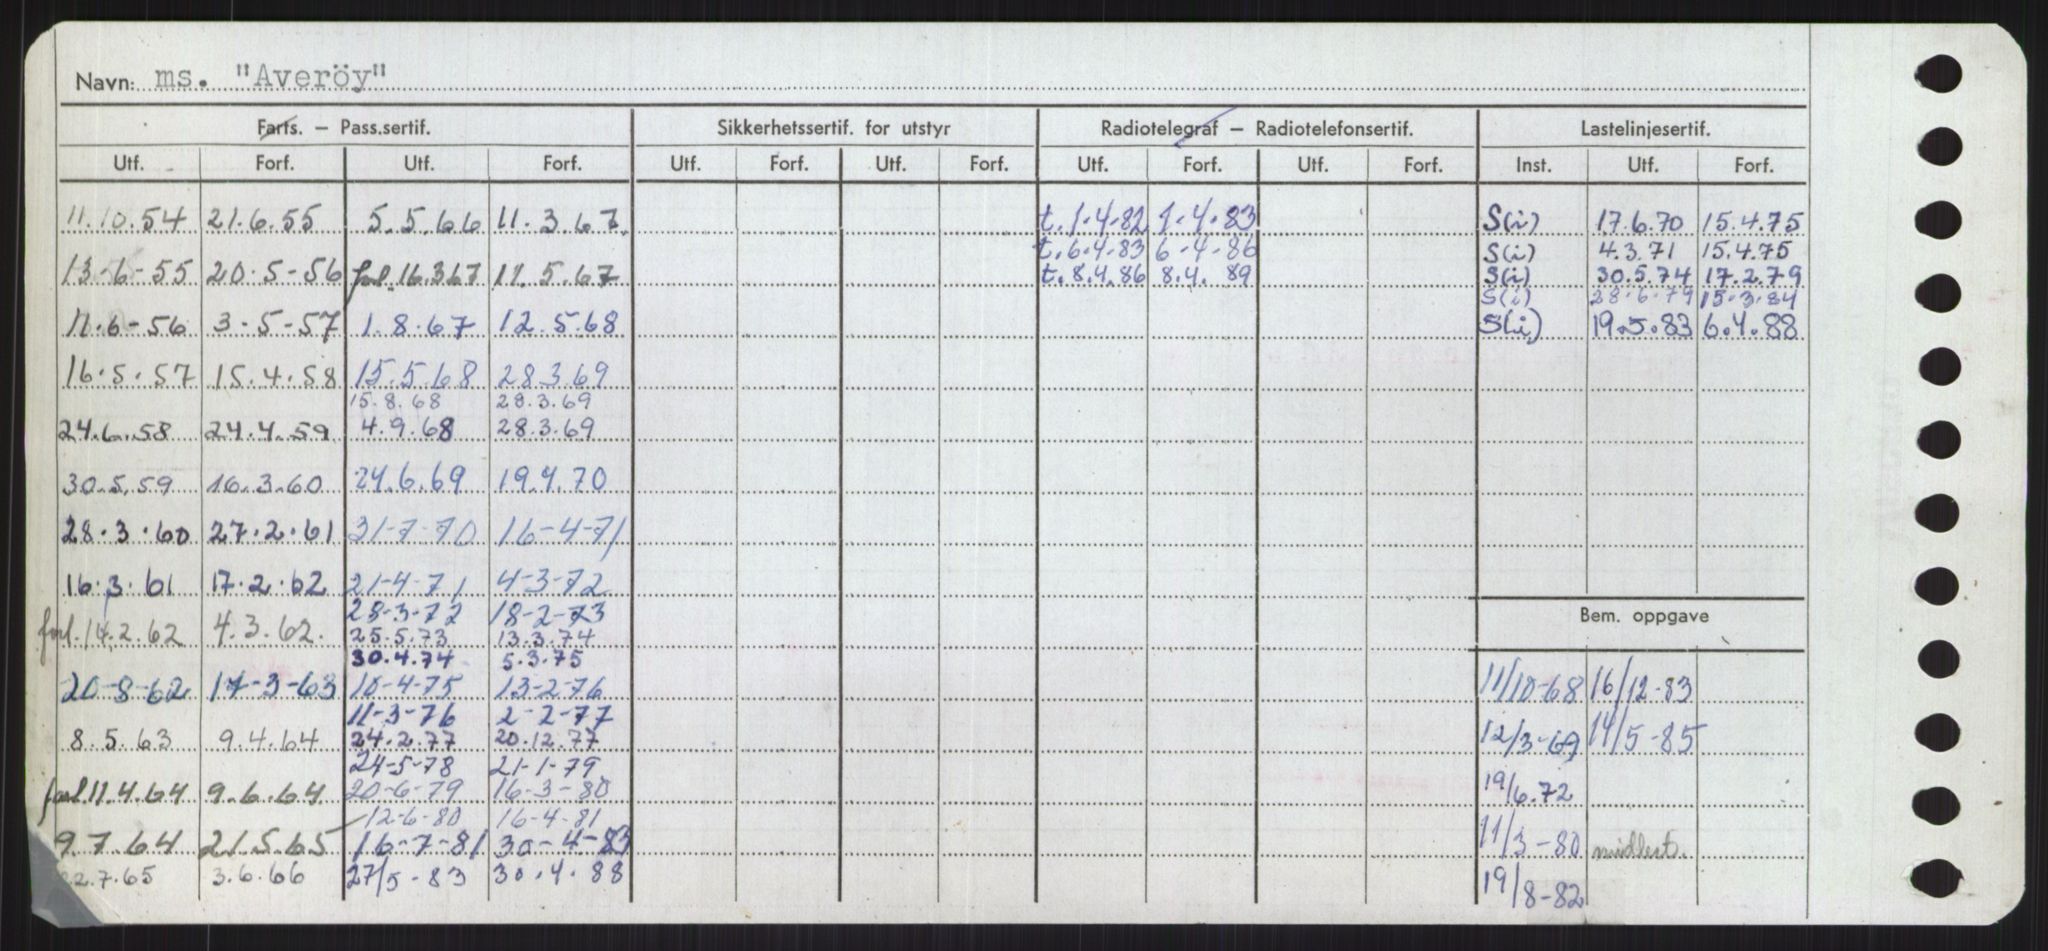 Navn: ms. "Averöy"
Farts. – Pass.sertif. Sikkerhetssertif. for utstyr Radiotelegraf – Radiotelefonsertif. Lastelinjesertif.
Utf. Forf. Utf. Forf. Utf. Forf. Utf. Forf. Utf. Forf. Utf. Forf. Inst. Utf. Forf.
11.10.54 21.6.55 5.5.66 11.3.67. t. 1.4.82 1.4.83 S(i) 17.6.70 15.4.75
t. 6.4.83 6-4-86 S(i) 4.3.71 15.4.75
13-6-55 20.5-56 forl. 16.3.67 11.5.67 t. 8.4.86 8.4.89 S(i) 30.5.74 17.2.79
S(i) 28.6.79 15.3.84
11.6-56 3-5-57 1.8.67 12.5.68 S(i) 19.5.83 6.4.88
16.5.57 15.4.58 15.5.68 28.3.69
15.8.68 28.3.69
24.6.58 24.4.59 4.9.68 28.3.69
30.5.59 16.3.60 24.6.69 19.4.70
28.3.60 27.2.61 31-7-70 16-4-71
16.3.61 17.2.62 21-4-71 4-3-72
28-3-72 18-2-73
Bem. oppgave
forl. 14.2.62 4.3.62. 25.5.73 13.3.74
30.4.74 5.3.75
20-8-62 17-3-63 10-4-75 13-2-76 11/10-68 16/12-83
11-3-76 2-2-77
8.5.63 9.4.64 24.2.77 20.12.77 12/3-69 14/5-85
24-5-78 21-1-79
forl. 11.4.64 9.6.64 20-6-79 16-3-80 19/6.72
12-6-80 16-4-81
9.7.64 21.5.65 16-7-81 30-4-83 11/3-80 midlert.
2.7.65 3.6.66 27/5-83 30.4.88 19/8-82